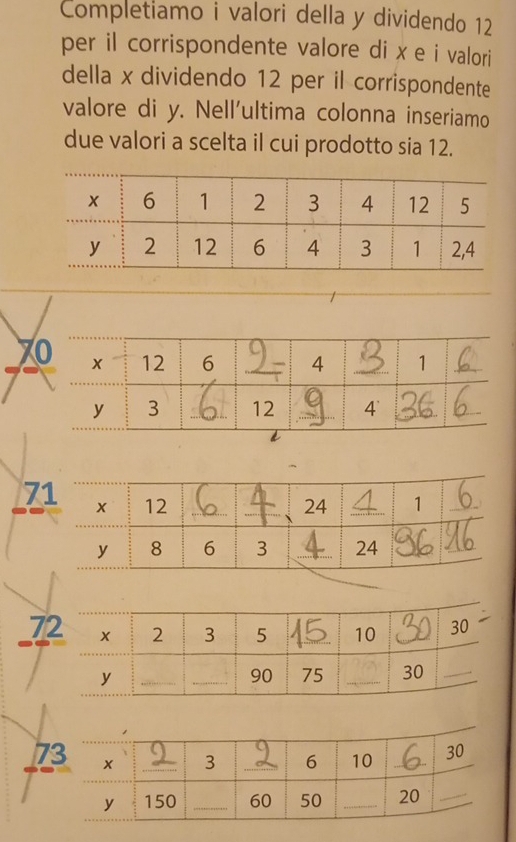 Completiamo i valori della y dividendo 12
per il corrispondente valore di x e i valori
della x dividendo 12 per il corrispondente
valore di y. Nell'ultima colonna inseriamo
due valori a scelta il cui prodotto sia 12.
x 6 1 2 3 4 12 5
y 2 12 6 4 3 1 2,4
70
x 12 6 2 4 3 1 6
y 3 6 12 9 4 36 6
71
x 12 6 4 24 1 1 6
y 8 6 3 4 24 96 16
72
x 2 3 5 15 10 30 30
y 90 75 30
73
x 2 3 2 6 10 6 30
y 150 60 50 20